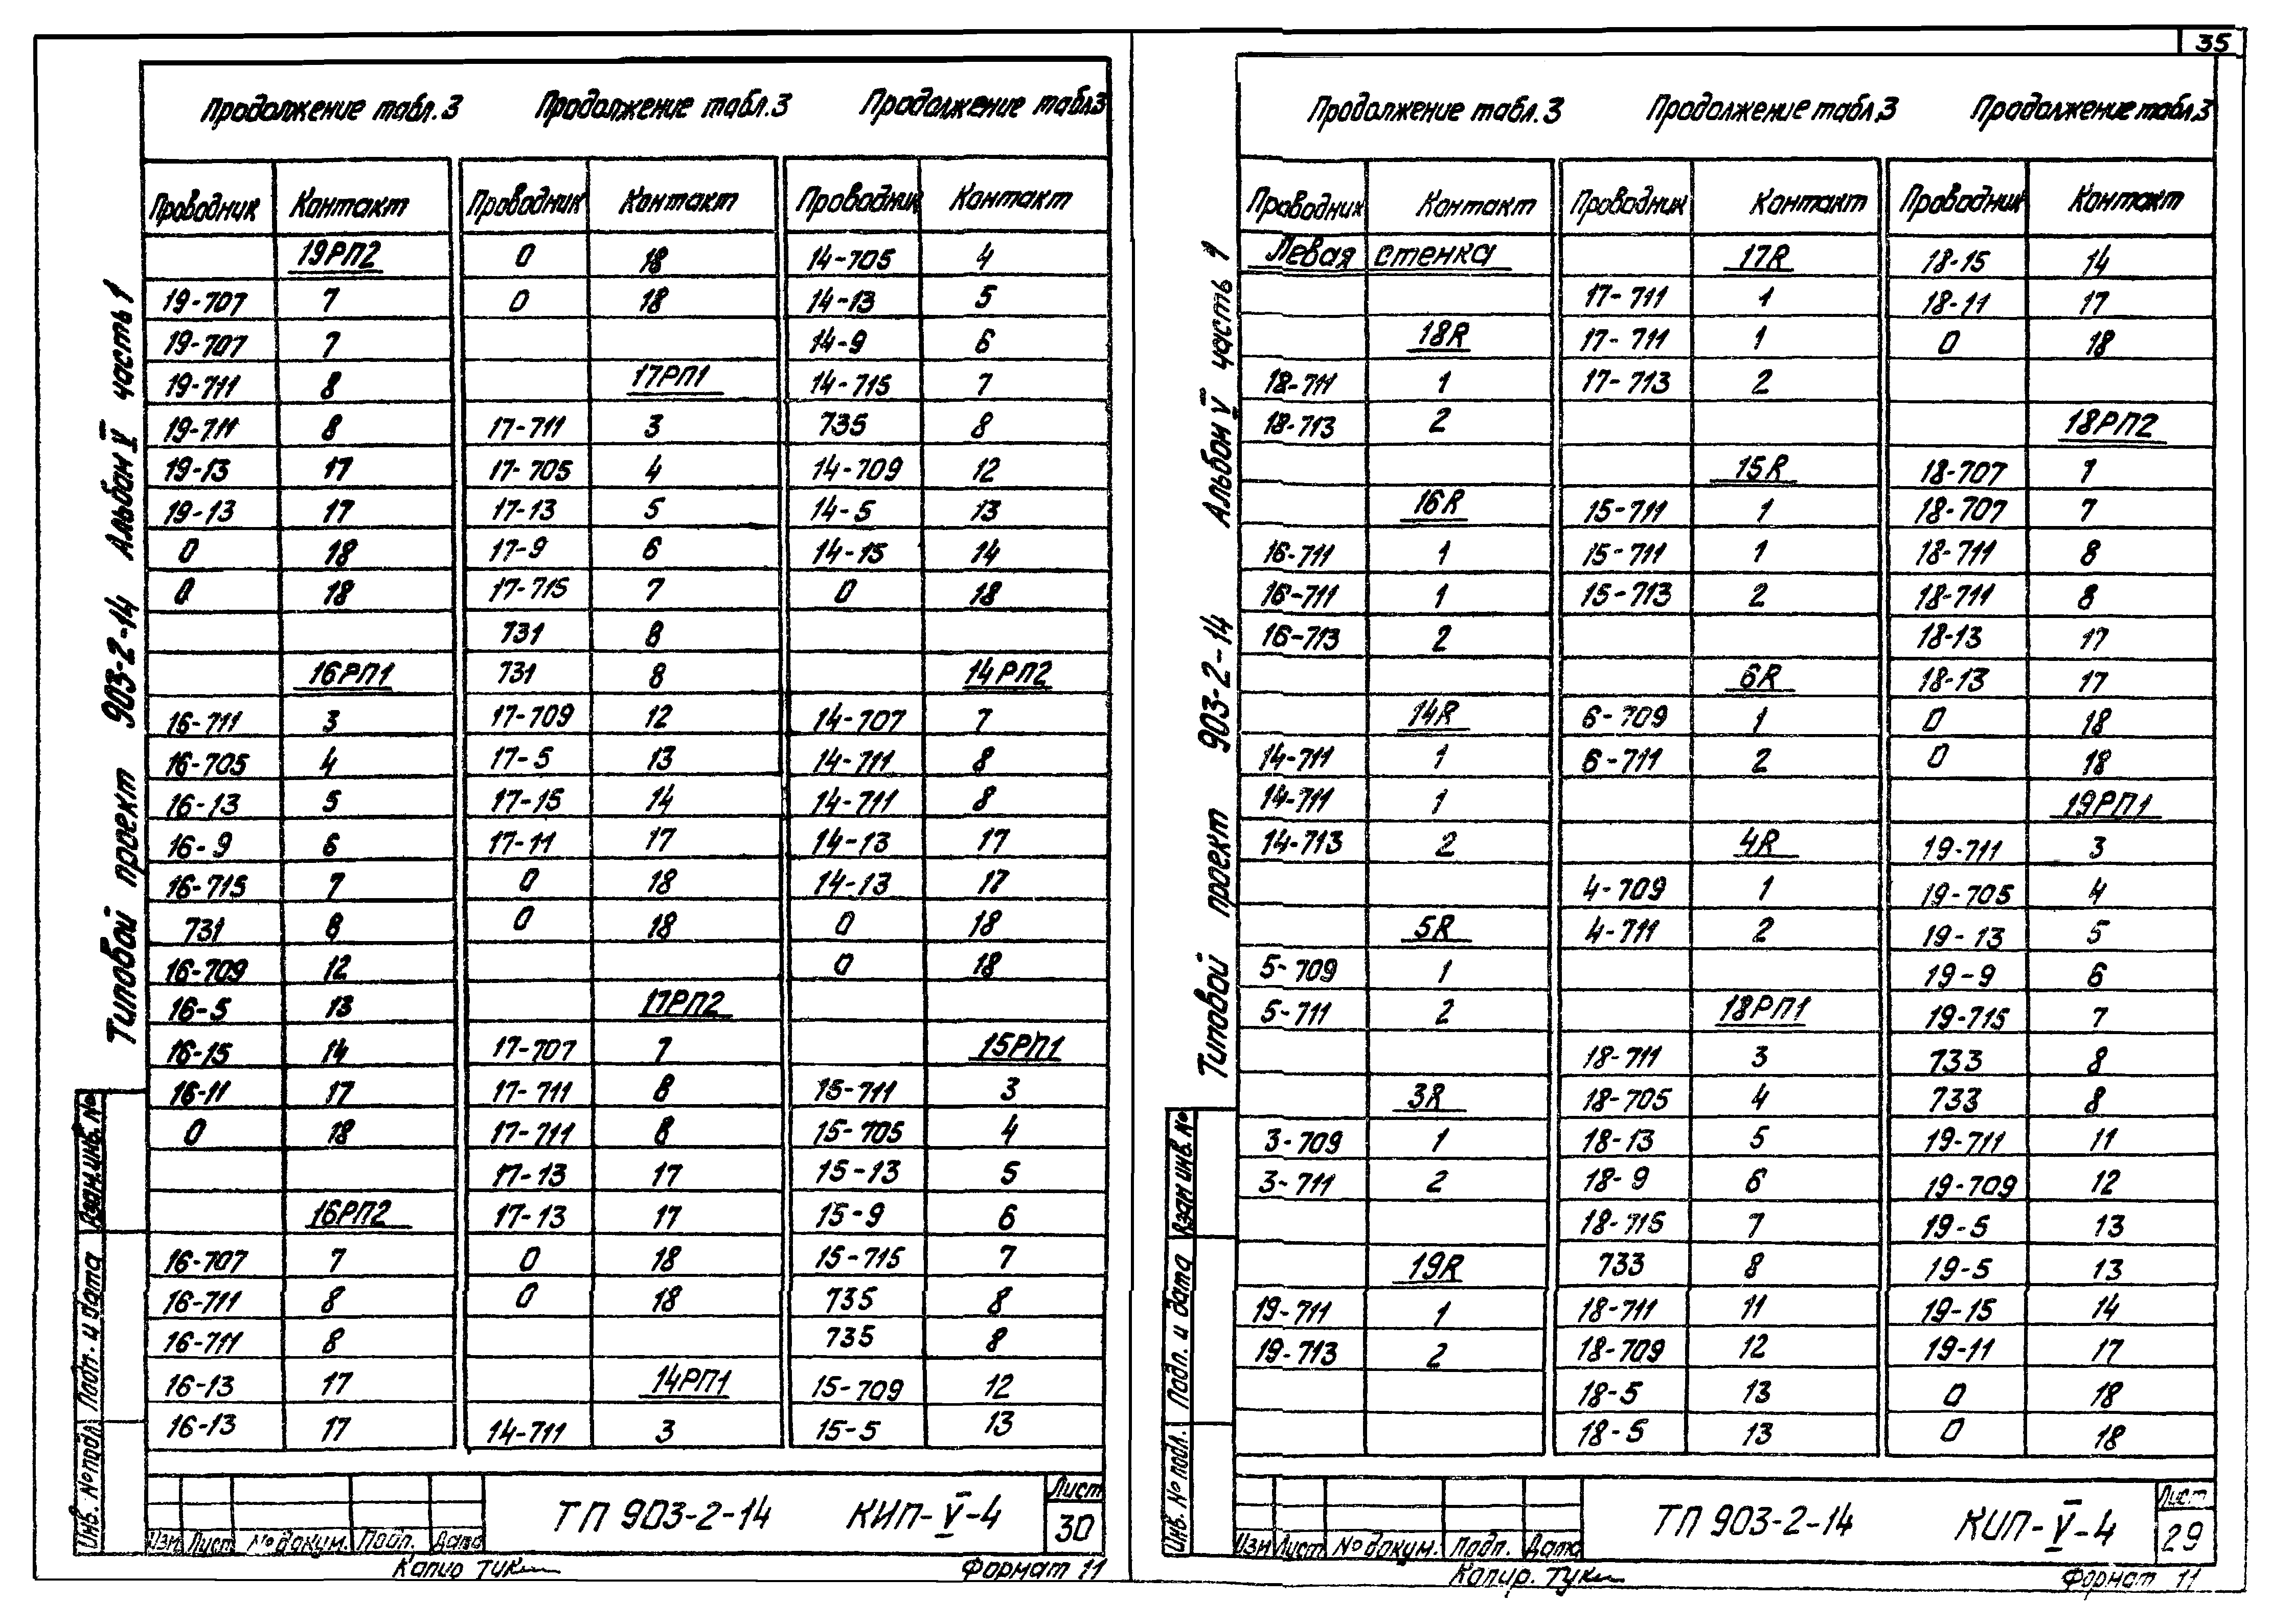 35
Продолжение табл.3 Продолжение табл.3 Продолжение табл3
Проводник Контакт Проводник Контакт Проводник Контакт
19РП2 0 18 14-705 4
19-707 7 0 18 14-13 5
19-707 7 14-9 6
19-711 8 17РП1 14-715 7
19-711 8 17-711 3 735 8
19-13 17 17-705 4 14-709 12
19-13 17 17-13 5 14-5 13
0 18 17-9 6 14-15 14
0 18 17-715 7 0 18
731 8
16РП1 731 8 14РП2
16-711 3 17-709 12 14-707 7
16-705 4 17-5 13 14-711 8
16-13 5 17-15 14 14-711 8
16-9 6 17-11 17 14-13 17
16-715 7 0 18 14-13 17
731 8 0 18 0 18
16-709 12 0 18
16-5 13 17РП2
16-15 14 17-707 7 15РП1
16-11 17 17-711 8 15-711 3
0 18 17-711 8 15-705 4
17-13 17 15-13 5
16РП2 17-13 17 15-9 6
16-707 7 0 18 15-715 7
16-711 8 0 18 735 8
16-711 8 735 8
16-13 17 14РП1 15-709 12
16-13 17 14-711 3 15-5 13
Типовой проект 903-2-14 Альбом V часть 1
Инв. № подл. Подп. и дата Взам.инв.№
Изм Лист № докум. Подп. Дата
ТП 903-2-14 КИП-V-4
Лист
30
Копир Туки
Формат 11
Продолжение табл.3 Продолжение табл.3 Продолжение табл.3
Проводник Контакт Проводник Контакт Проводник Контакт
Левая стенка 17R 18-15 14
17-711 1 18-11 17
18R 17-711 1 0 18
18-711 1 17-713 2
18-713 2 18РП2
15R 18-707 7
16R 15-711 1 18-707 7
16-711 1 15-711 1 18-711 8
16-711 1 15-713 2 18-711 8
16-713 2 18-13 17
6R 18-13 17
14R 6-709 1 0 18
14-711 1 6-711 2 0 18
14-711 1 19РП1
14-713 2 4R 19-711 3
4-709 1 19-705 4
5R 4-711 2 19-13 5
5-709 1 19-9 6
5-711 2 18РП1 19-715 7
18-711 3 733 8
3R 18-705 4 733 8
3-709 1 18-13 5 19-711 11
3-711 2 18-9 6 19-709 12
18-715 7 19-5 13
19R 733 8 19-5 13
19-711 1 18-711 11 19-15 14
19-713 2 18-709 12 19-11 17
18-5 13 0 18
18-5 13 0 18
Типовой проект 903-2-14 Альбом V часть 1
Инв. № подл. Подп. и дата Взам инв. №
Изм Лист № докум. Подп. Дата
ТП 903-2-14 КИП-V-4
Лист
29
Копир. Туки
Формат 11